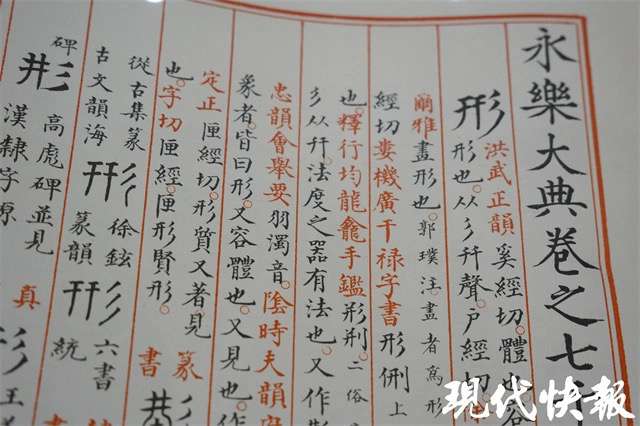 永樂大典卷之七千
形 洪武正韻奚經切體也容
形也从彡幵聲户經切
爾雅畫形也郭璞注畫者為形
經切婁機廣干禄字書形侀上
也釋行均龍龕手鑑形𠛬二俗
彡从幵法度之器有法也又作
忠韻會舉要羽濁音陰時夫韻府
象者皆曰形又容體也又見也作
定正匣經切形質又著見
也字切匣經匣形賢形 篆書
從古集篆 徐鉉 六書
古文韻海 篆韻 統
碑 高彪碑並見 真書
漢隸字源
現代快報